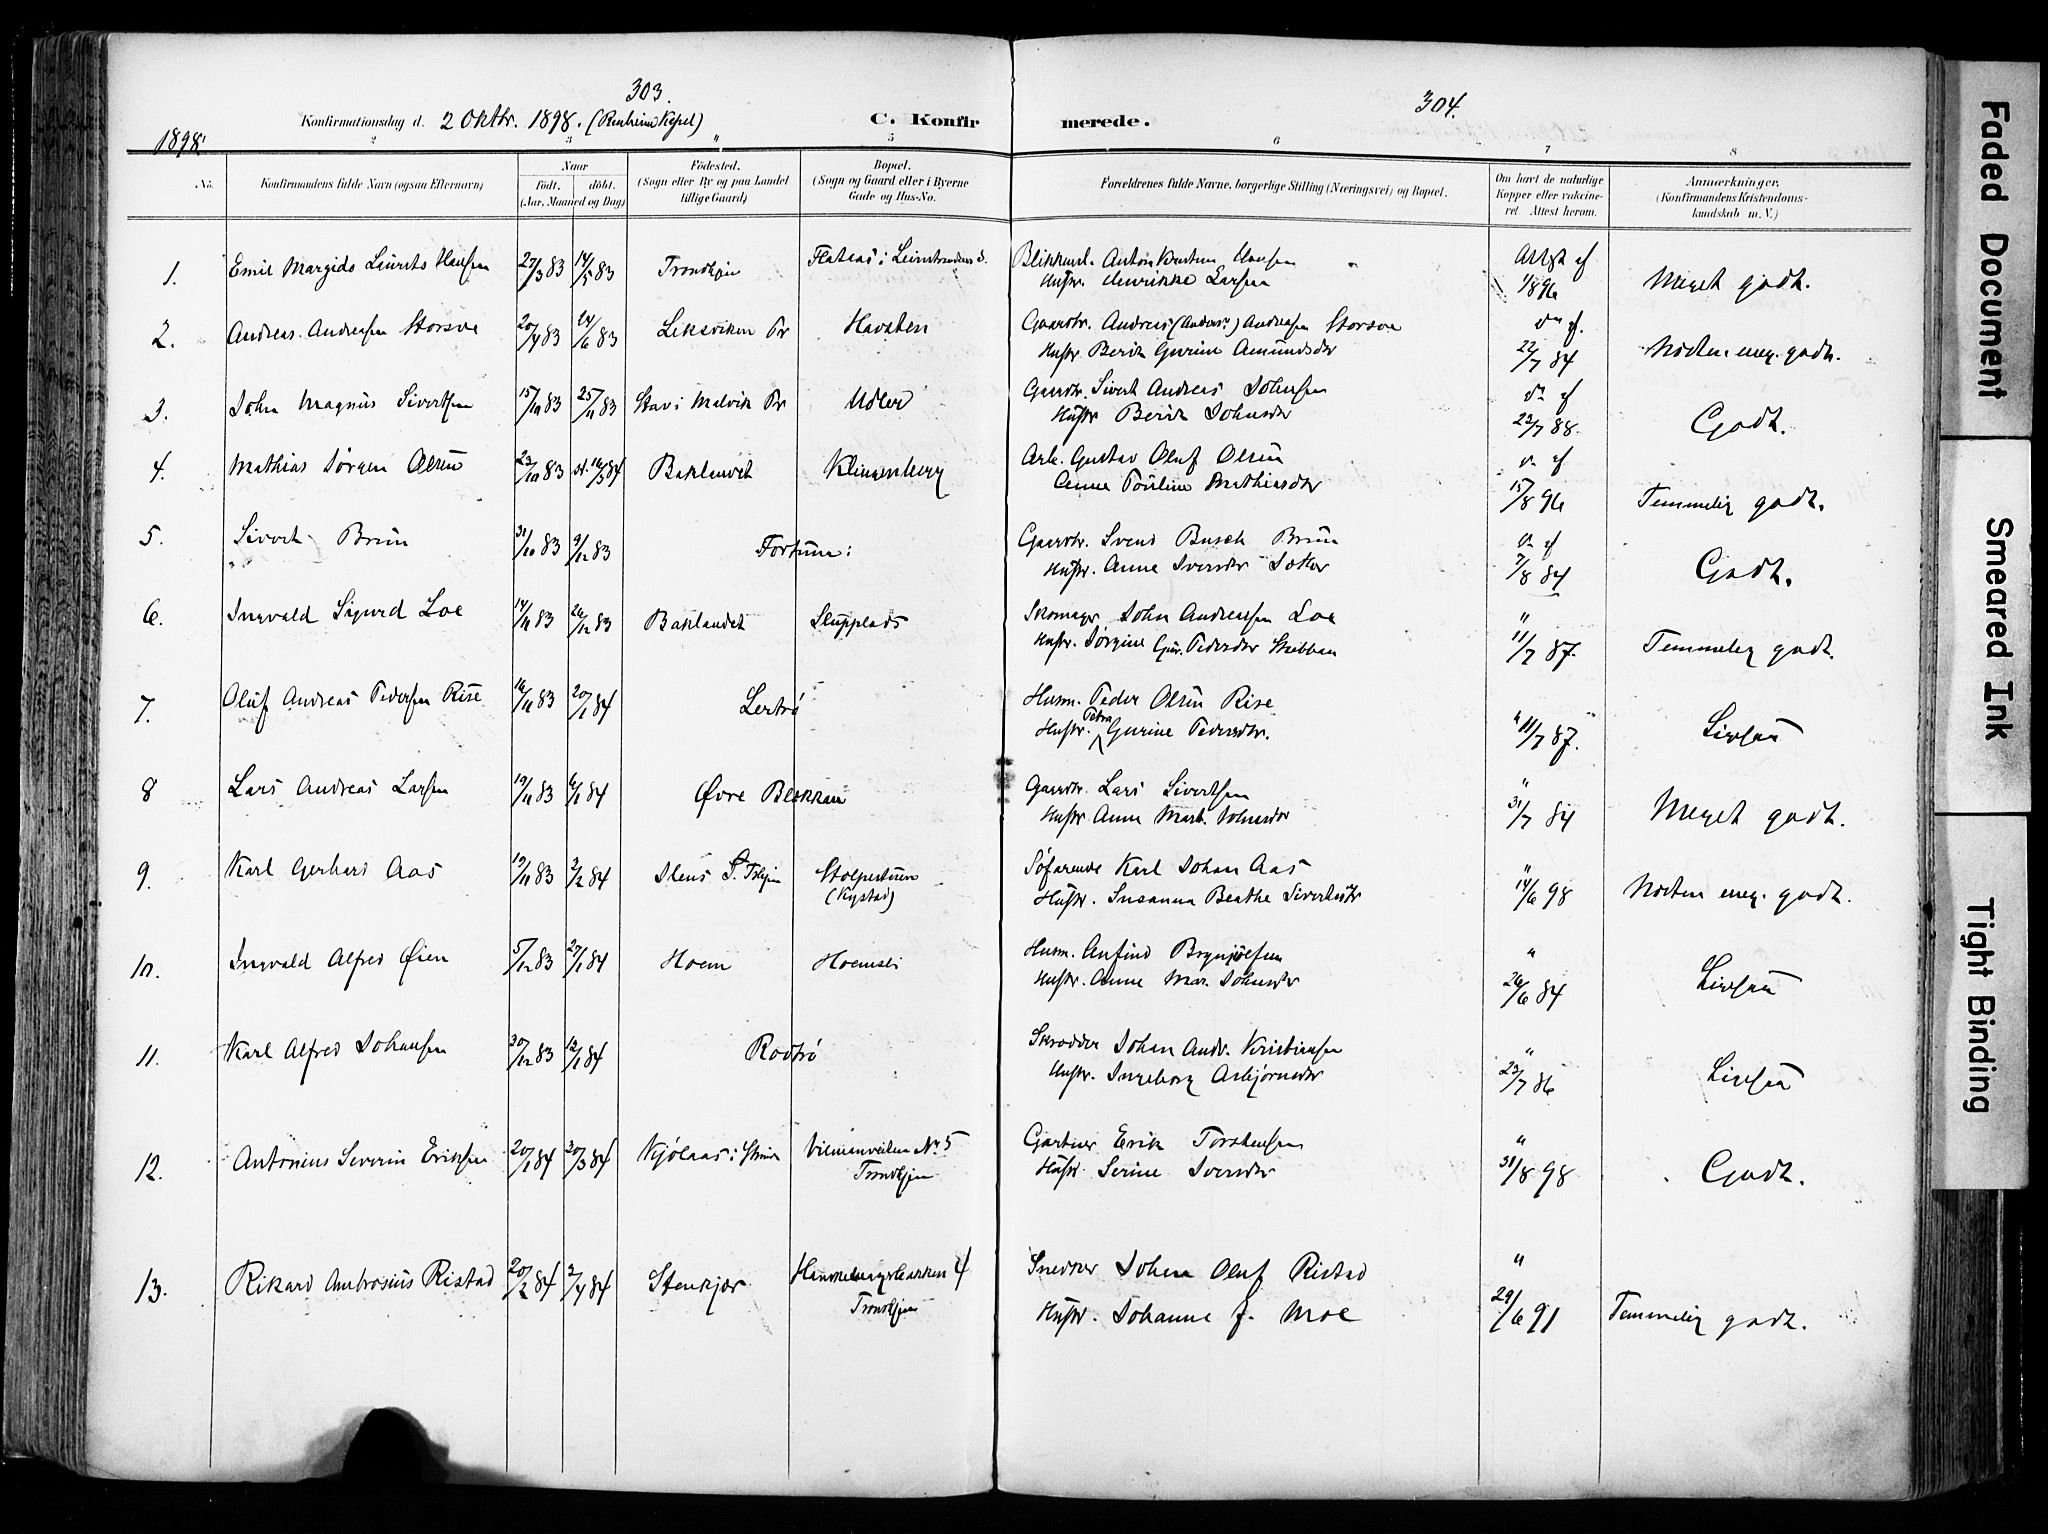 303.
304.
1898.
Konfirmationsdag d. 2 Oktbr. 1898. C. Konfirmerede.
2 3 " 5 6 7 8
No.
Konfirmandens fulde Navn (ogsaa Efternavn)
Naar
født. døbt.
(Aar, Maaned og Dag)
Fødested.
(Sogn eller By og paa Landet
tillige Gaard)
Bopæl.
(Sogn og Gaard eller i Byerne
Gade og Hus-No.
Forældrenes fulde Navne, borgerlige Stilling (Næringsvei) og Bopæl.
Om havt de naturlige
Kopper eller vakcine-
ret Attest herom.
Anmærkninger.
(Konfirmandens Kristendoms-
kundskab m. V.)
1. Emil Margido Hansen 27/3 83 14/5 83 Trondhjem Anton Hansen Attest af
Hustr. Henrikke Larsen 1/8 96 Meget godt.
2. Andreas Andreasen Storsve 20/4 83 24/6 83 Leksviken Pr Havsten Gaardbr. Andreas Andreasen Storsve
Hustr. Berit Gurine Amundsdtr 22/7 84 Næsten meg. godt.
3. John Magnus Sivertsen 15/10 83 25/11 83 Stav i Malvik Pr Udler Gaardbr. Sivert Andreas Johnsen
Hustr Berit Johnsdtr 23/7 88. Godt.
4. Mathias Jørgen Olsen 23/10 83 Baklandet Klingenberg Arb. Gustav Oluf Olsen
Anne Pauline Mathiasdtr 15/8 96 Temmelig godt.
5. Sivert Brun 31/10 83 9/12 83 Fortuna Gaardbr. Svend Busch Brun
Hustr. Anne Iversdtr 7/8 84 Godt.
6. Ingvald Sigurd Loe 14/11 83 26/12 83 Baklandet Slupplads Skomager John Andreassen Loe "
Hustr. Jørgine Pedersdtr 11/7 87. Temmelig godt.
7. Oluf Andreas Pedersen Rise 16/11 83 20/1 84 Lertrø Husm. Peder Olsen Rise
Hustr. Petra Gurine Pedersdtr. " 11/7 87. Ligesaa
8 Lars Andreas Larsen 19/11 83 6/1 84 Øvre Blakkan Gaardbr. Lars Sivertsen "
Hustr Anne Mart. Johnsdtr 31/7 84 Meget godt.
9. Karl Gerhard Aas 19/11 83 3/2 84 Ilens S. Stolpestuen Søfarende Karl Johan Aas "
(Nystad) Hustr. Susanna Beathe 14/6 98 Næsten meg. godt.
10. Ingvald Alfred Øien 5/12 83 27/1 84 Hoem Hoemsli Husm. Anfind Brynjolfsen "
Hustr. Anne Mar. Johnsdtr 26/6 84 Ligesaa
11. Karl Alfred Johansen 30/12 83 13/1 84 Rodtrø Skrædder Johan Andr. Kristiansen "
Hustr. Ingeborg Asbjørnsdtr 23/7 86 Ligesaa
12. Antonius Severin Eriksen 20/1 84 30/3 84 Nr 5 Gartner Erik Torstensen "
Trondhjem Hustr Serine Iversdtr 31/8 98 Godt.
13. Rikard Ambrosius Ristad 20/2 84 2/4 84 Stenkjær Hanskemagerbakken 4 Snedker Johan Oluf Ristad "
Trondhjem Hustr. Johanne f. Moe 29/6 91 Temmelig godt.
Faded Document
Smeared Ink
Tight Binding